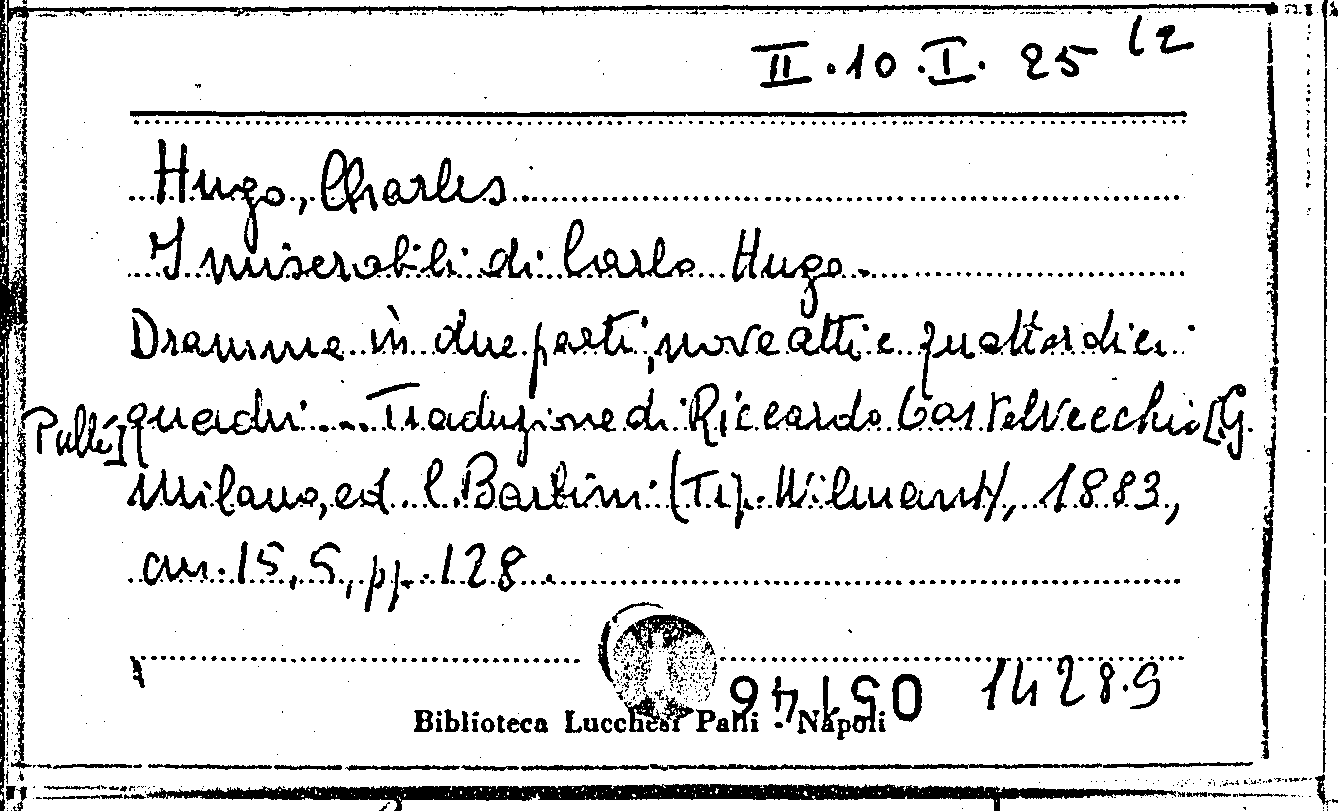 II.10.I.25 (2
Hugo, Charles
I miserabili di Carlo Hugo.
Dramma in due parti, nove atti e quattordici
quadri... Traduzione di Riccardo Castelvecchio [G.
Pullé]
Milano, ed. C. Barbini (Tip. Wilmant), 1883,
cm. 15,5, pp. 128.
14289
Biblioteca Lucchesi Palli - Napoli